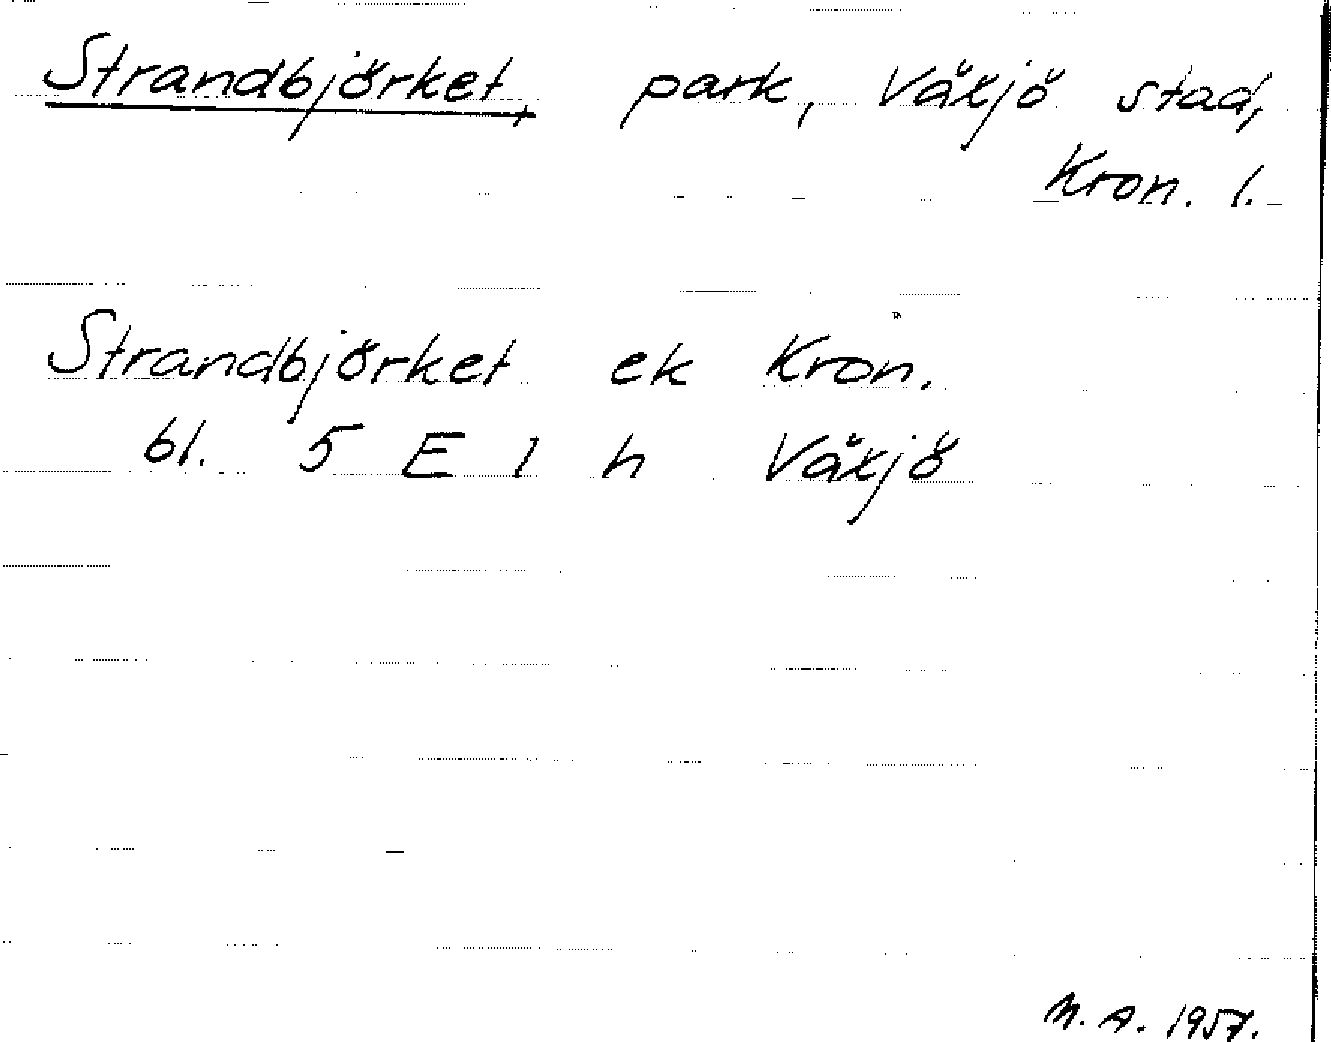 Strandbjörket, park, Växjö stad,
Kron. l.
Strandbjörket ek Kron.
bl. 5 E 1 h Växjö
M. A. 1957.